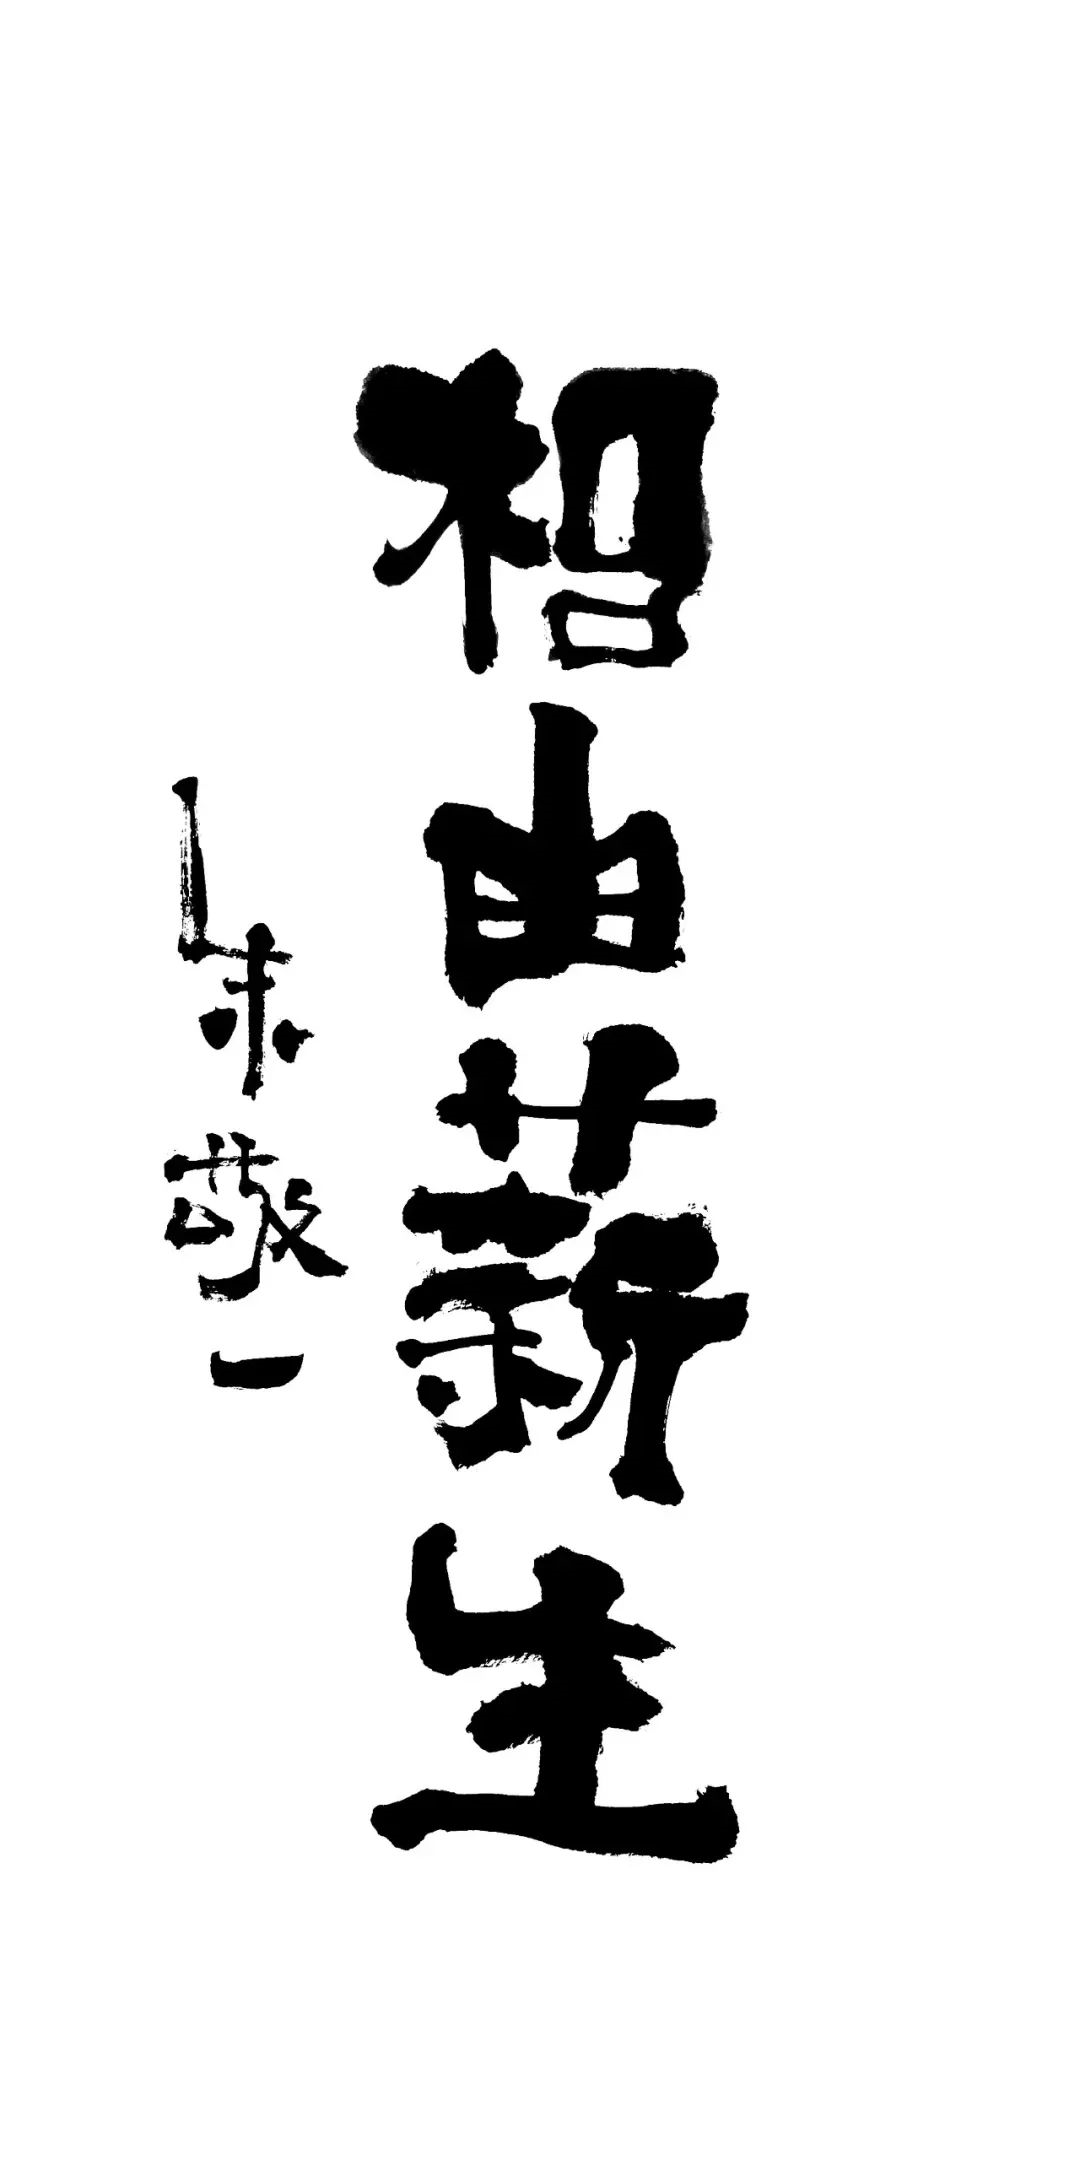 相由薪生
朱敬一